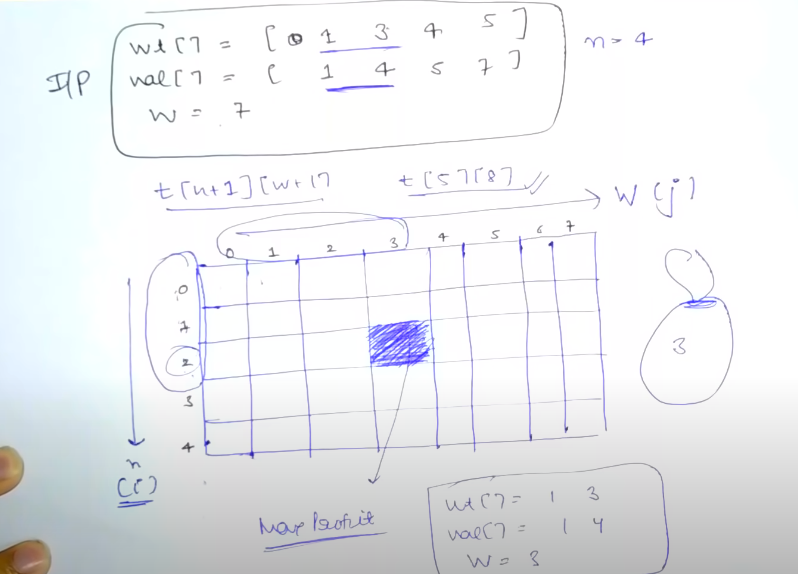 wt[] = [ 1 3 4 5 ]
I/P
val[] = [ 1 4 5 7 ]
n > 4
W = 7
t[n+1][w+1]
t[5][8]
W (j)
0 1 2 3 4 5 6 7
0
1
2
3
4
3
n
(i)
Max Profit
wt[] = 1 3
val[] = 1 4
W = 3